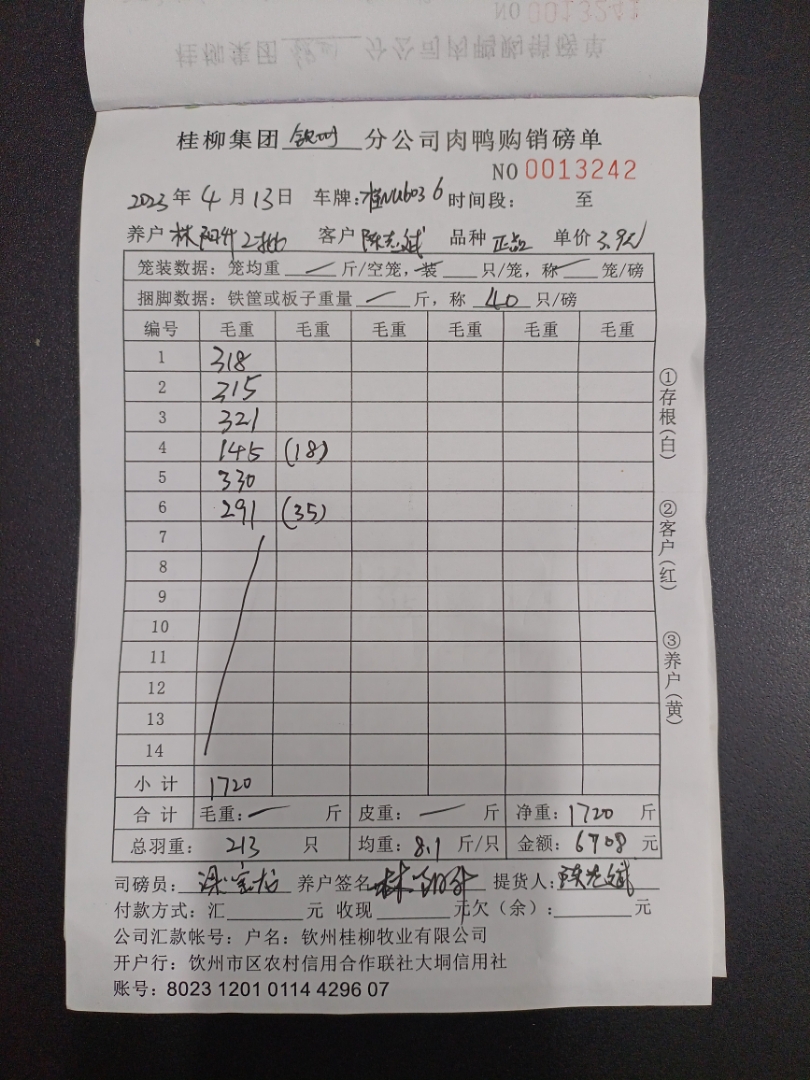 NO 0013241
桂柳集团 钦州 分公司肉鸭购销磅单
桂柳集团 钦州 分公司肉鸭购销磅单
NO 0013242
2023 年 4 月 13 日 车牌: 桂NU6036 时间段: 至
养户 林阳升2批 客户 陈志斌 品种 正品 单价 3.9元
笼装数据: 笼均重 — 斤/空笼, 装 只/笼, 称 — 笼/磅
捆脚数据: 铁筐或板子重量 — 斤, 称 40 只/磅
编号 毛重 毛重 毛重 毛重 毛重 毛重
1 318
2 315
3 321
4 145 (18)
5 330
6 291 (35)
7
8
9
10
11
12
13
14
小计 1720
合计 毛重: — 斤 皮重: — 斤 净重: 1720 斤
总羽重: 213 只 均重: 8.1 斤/只 金额: 6708 元
①存根(白)
②客户(红)
③养户(黄)
司磅员: 养户签名 林阳升 提货人: 陈志斌
付款方式: 汇 元 收现 元欠(余): 元
公司汇款帐号: 户名: 钦州桂柳牧业有限公司
开户行: 饮州市区农村信用合作联社大垌信用社
账号: 8023 1201 0114 4296 07